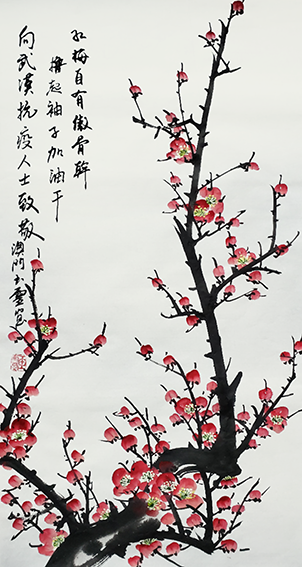 红梅自有傲骨
撸起袖子加油干
向武漢抗疫人士致敬
澳門